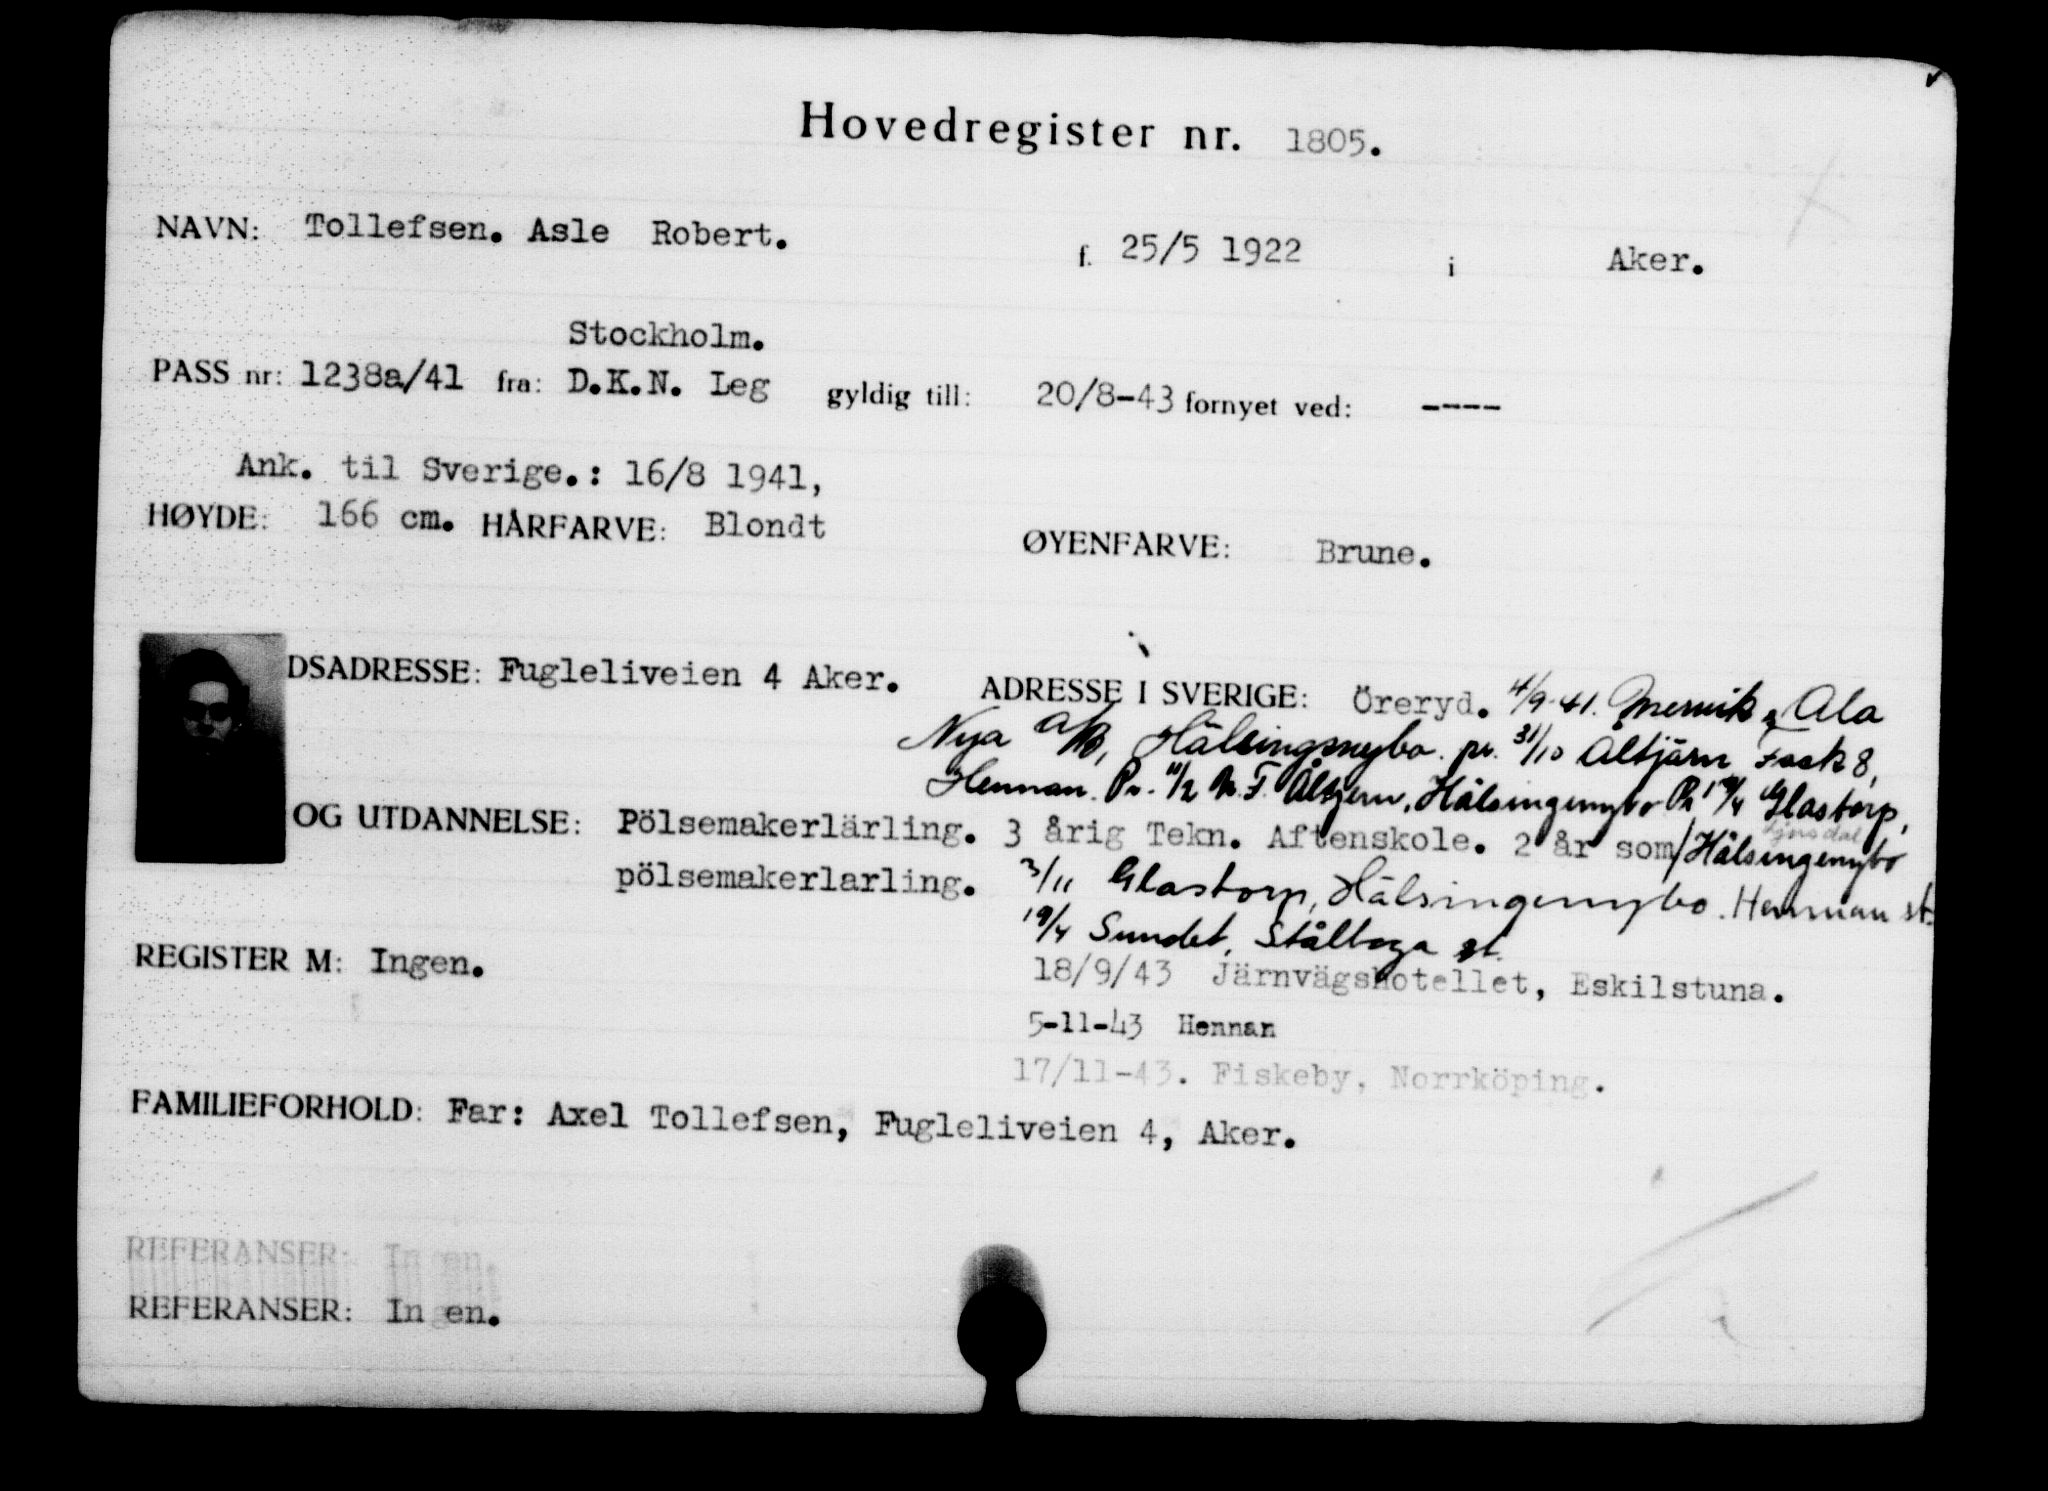 Hovedregister nr. 1805.
NAVN: Tollefsen. Asle Robert. f. 25/5 1922 i Aker.
Stockholm.
PASS nr: 1238a/41 fra: D.K.N. Leg gyldig till: 20/8-43 fornyet ved: ----
Ank. til Sverige.: 16/8 1941,
HØYDE: 166 cm. HÅRFARVE: Blondt ØYENFARVE: Brune.
DSADRESSE: Fugleliveien 4 Aker. ADRESSE I SVERIGE: Öreryd. 4/9-41. Ala
Nya A/B, Hälsingenybo. pr. 31/10 Åltjärn Fack 8,
Hennan. Pr. 11/2 Åltjern, Hälsingenybo Pr Glastorp,
OG UTDANNELSE: Pölsemakerlärling. 3 årig Tekn. Aftenskole. 2 år som/Hälsingenybo
pölsemakerlarling. 3/11 Glastorp, Hälsingenybo. Hennan st.
19/4 Sundet, Stålboga st.
REGISTER M: Ingen. 18/9/43 Järnvägshotellet, Eskilstuna.
5-11-43 Hennan
17/11-43. Fiskeby, Norrköping.
FAMILIEFORHOLD: Far: Axel Tollefsen, Fugleliveien 4, Aker.
REFERANSER: In en.
REFERANSER: Ingen.